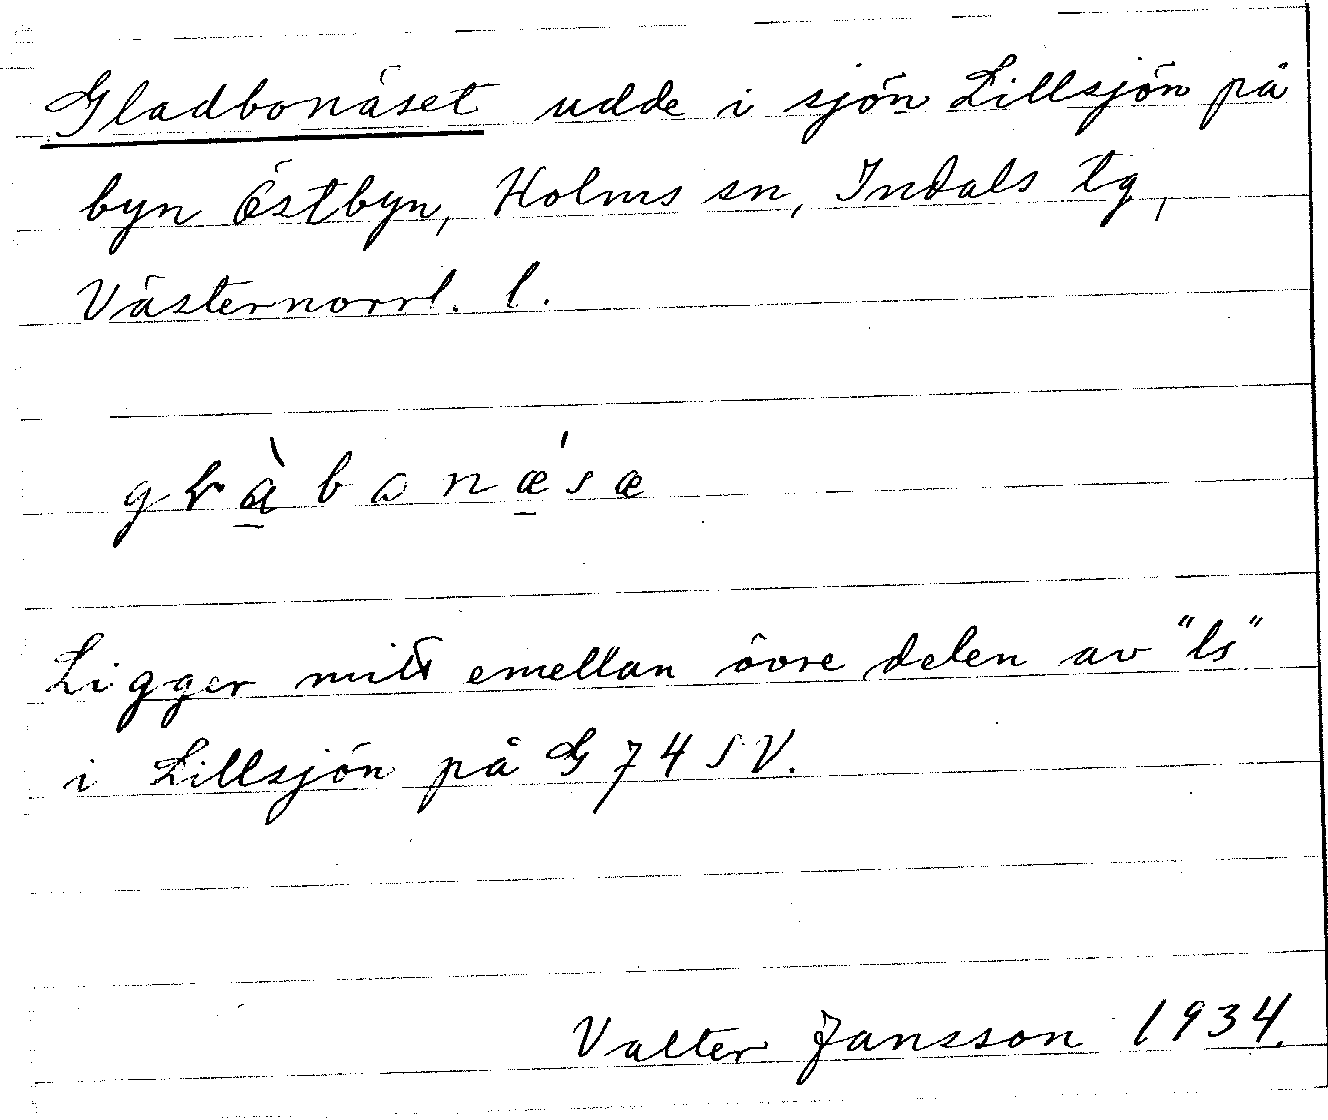 Gladbonäset udde i sjön Lillsjön på
byn Östbyn, Holms sn, Indals tg,
Västernorrl. l.
gɽàbonǽsæ
Ligger mitt emellan övre delen av "ls"
i Lillsjön på G 74 SV.
Valter Jansson 1934.